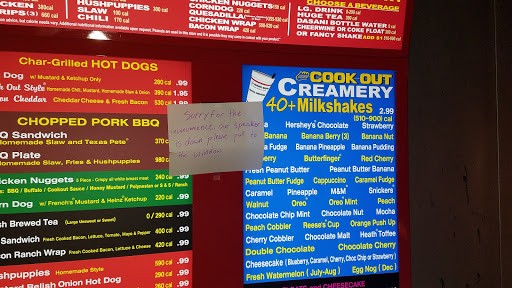 RIPS (3) 660 cal
HUSHPUPPIES
SLAW 100 cal
CHILI 170 cal
CHICKEN NUGGETS
CORNDOG
QUESADILLA
CHICKEN WRAP
BACON WRAP
CHOOSE A BEVERAGE
LG. DRINK
HUGE TEA
DASANI BOTTLE WATER
CHEERWINE OR COKE FLOAT
OR FANCY SHAKE ADD $1
Char-Grilled HOT DOGS
Dog w/ Mustard & Ketchup Only 280 cal .99
Out Style Homemade Chili, Mustard, Homemade Slaw & Onion 390 cal .99
Cheddar Cheese & Fresh Bacon 530 cal .99
CHOPPED PORK BBQ
Q Sandwich
Homemade Slaw and Texas Pete 370
Q Plate
Homemade Slaw, Fries & Hushpuppies 980 cal
Chicken Nuggets 5 Piece - Crispy all white breast meat 240 cal .99
BBQ / Buffalo / Cookout Sauce / Honey Mustard / Polynesian or S & S / Ranch
rn Dog w/ French's Mustard & Heinz Ketchup 220 cal .99
sh Brewed Tea (Large Unsweet or Sweet) 0 / 290 cal .99
Sandwich Fresh Cooked Bacon, Lettuce, Tomato, Mayo & Pepper 400 cal .99
con Ranch Wrap Fresh Cooked Bacon, Lettuce & Cheese 420 cal .99
shpuppies Homemade Style .99
ustard Relish Onion Hot Dog .99
Sorry for the
inconvenience our speaker
is down please pull to
the window.
COOK OUT
CREAMERY
40+ Milkshakes 2.99
(510-900) cal
Hershey's Chocolate Strawberry
Banana Banana Berry (3) Banana Nut
Banana Fudge Banana Pineapple Banana Pudding
Berry Butterfinger Red Cherry
Fresh Peanut Butter Peanut Butter Banana
Peanut Butter Fudge Cappuccino Caramel Fudge
Caramel Pineapple M&M Snickers
Walnut Oreo Oreo Mint Peach
Chocolate Chip Mint Chocolate Nut Mocha
Peach Cobbler Reese's Cup Orange Push Up
Cherry Cobbler Chocolate Malt Heath Toffee
Double Chocolate Chocolate Cherry
Cheesecake (Blueberry, Caramel, Cherry, Choc Chip or Strawberry)
Fresh Watermelon (July-Aug) Egg Nog (Dec)
and CHEESECAKE